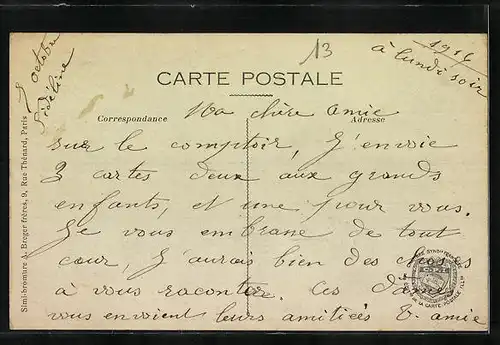 7 octobre
Fidéline
13
1916
à lundi soir
CARTE POSTALE
Correspondance
Adresse
Ma chère Amie
sur le comptoir, J'envoie
3 cartes deux aux grands
enfants, et une pour vous.
Je vous embrasse de tout
cœur, J'aurais bien des choses
à vous raconter. Ces dames
vous envoient leurs amitiées V. amie
Simi-bromure A. Breger frères, 9, Rue Thénard, Paris
DE LA CARTE POSTALE